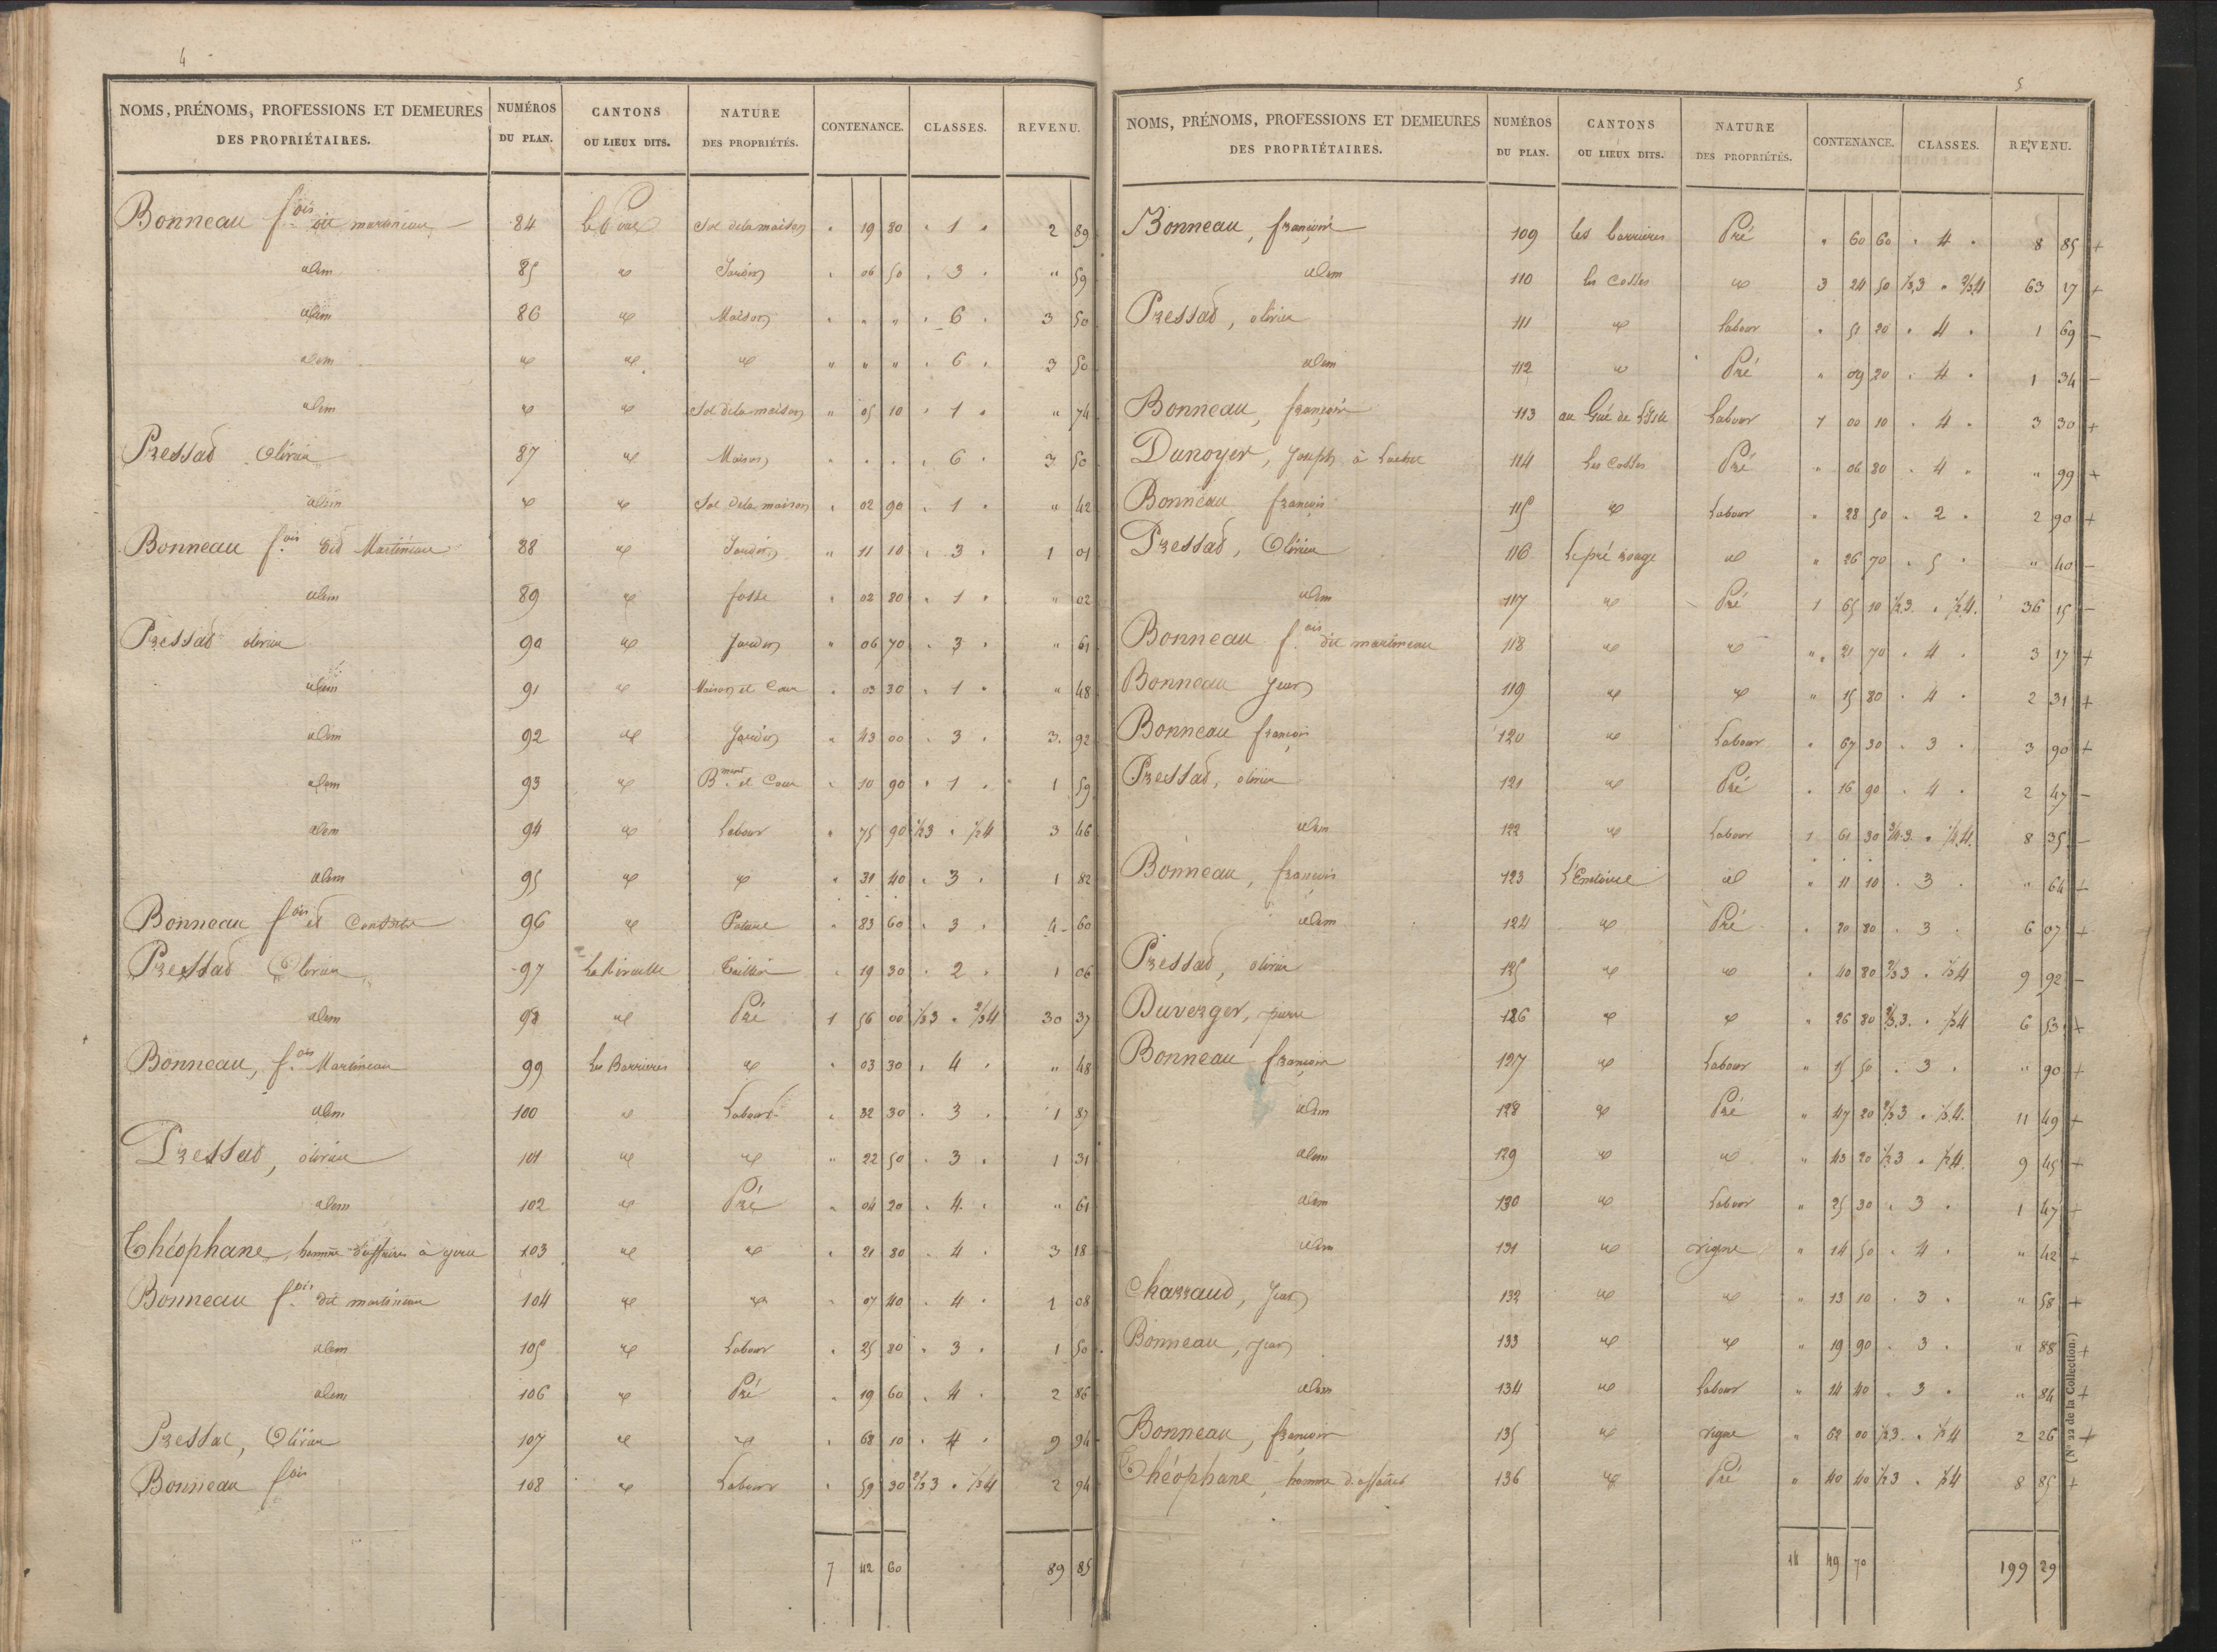 4
NOMS, PRÉNOMS, PROFESSIONS ET DEMEURES DES PROPRIÉTAIRES. NUMÉROS DU PLAN. CANTONS OU LIEUX DITS. NATURE DES PROPRIÉTÉS. CONTENANCE. CLASSES. REVENU.
Bonneau f.ois dit martineau 84 Sol de la maison " 19 80 " 1 " 2 89
idem 85 id Jardin " 06 50 " 3 " " 59
idem 86 id Maison " " " " 6 " 3 50
idem id id id " " " " 6 " 3 50
idem id id Sol de la maison " 05 10 " 1 " " 74
Pressac Olivier 87 id Maison " " " " 6 " 3 50
idem id id Sol de la maison " 02 90 " 1 " " 42
Bonneau f.ois dit Martineau 88 id Jardin " 11 10 " 3 " 1 01
idem 89 id fosse " 02 80 " 1 " " 02
Pressac olivier 90 id Jardin " 06 70 " 3 " " 61
idem 91 id Maison et Cour " 03 30 " 1 " " 48
idem 92 id Jardin " 43 00 " 3 " 3 92
idem 93 id B.ment et Cour " 10 90 " 1 " 1 59
idem 94 id Labour " 75 90 1/2 3 " 1/2 4 3 46
idem 95 id id " 31 40 " 3 " 1 82
Bonneau f.ois et 96 id Pature " 83 60 " 3 " 4 60
Pressac Olivier 97 Taillis " 19 30 " 2 " 1 06
idem 98 id Pré 1 56 00 1/3 3 " 2/3 4 30 37
Bonneau, f.ois Martineau 99 Les Barrieres id " 03 30 " 4 " " 48
idem 100 id Labour " 32 30 " 3 " 1 87
Pressac, olivier 101 id id " 22 50 " 3 " 1 31
idem 102 id Pré " 04 20 " 4 " " 61
Théophane, homme d'affaires à 103 id id " 21 80 " 4 " 3 18
Bonneau f.ois dit martineau 104 id id " 07 40 " 4 " 1 08
idem 105 id Labour " 25 80 " 3 " 1 50
idem 106 id Pré " 19 60 " 4 " 2 86
Pressac, Olivier 107 id id " 68 10 " 4 " 9 94
Bonneau fois 108 id Labour " 59 30 2/3 3 " 1/3 4 2 94
7 42 60 89 85
5
NOMS, PRÉNOMS, PROFESSIONS ET DEMEURES DES PROPRIÉTAIRES. NUMÉROS DU PLAN. CANTONS OU LIEUX DITS. NATURE DES PROPRIÉTÉS. CONTENANCE. CLASSES. REVENU.
Bonneau, françois 109 les barrieres Pré " 60 60 " 4 " 8 85 +
idem 110 les Cosses id 3 24 50 1/3 3 " 2/3 4 63 17 +
Pressac, olivier 111 id labour " 51 20 " 4 " 1 69 -
idem 112 id Pré " 09 20 " 4 " 1 34 -
Bonneau, françois 113 au Gué de Labour 1 00 10 " 4 " 3 30 +
Dunoyer, Joseph à 114 Les Cosses Pré " 06 80 " 4 " " 99 +
Bonneau françois 115 id Labour " 28 50 " 2 " 2 90 +
Pressac, Olivier 116 Le pré rouge id " 26 70 " 5 " " 40 -
idem 117 id Pré 1 65 10 1/2 3 " 1/2 4 36 15 -
Bonneau f.ois dit martineau 118 id id " 21 70 " 4 " 3 17 +
Bonneau Jean 119 id id " 15 80 " 4 " 2 31 +
Bonneau françois 120 id Labour " 67 30 " 3 " 3 90 +
Pressac, olivier 121 id Pré " 16 90 " 4 " 2 47 -
idem 122 id Labour 1 61 30 3/4 3 " 1/4 4 8 35 -
Bonneau, françois 123 id " 11 10 " 3 " " 64 +
idem 124 id Pré " 20 80 " 3 " 6 07 +
Pressac, olivier 125 id id " 40 80 2/3 3 " 1/3 4 9 92 -
Duverger, pierre 126 id id " 26 80 2/3 3 " 1/3 4 6 53 +
Bonneau françois 127 id Labour " 15 50 " 3 " " 90 +
idem 128 id Pré " 47 20 2/3 3 " 1/3 4 11 49 +
idem 129 id id " 43 20 1/2 3 " 1/2 4 9 45 +
idem 130 id Labour " 25 30 " 3 " 1 47 +
idem 131 id vigne " 14 50 " 4 " " 42 +
Charraud, Jean 132 id id " 13 10 " 3 " " 58 +
Bonneau, Jean 133 id id " 19 90 " 3 " " 88 +
idem 134 id labour " 14 40 " 3 " " 84 +
Bonneau, françois 135 id vigne " 62 00 1/2 3 " 1/2 4 2 26 +
Théophane, homme d'affaires 136 id Pré " 40 40 1/2 3 " 1/2 4 8 85 +
49 70 199 29
(N° 22 de la Collection.)